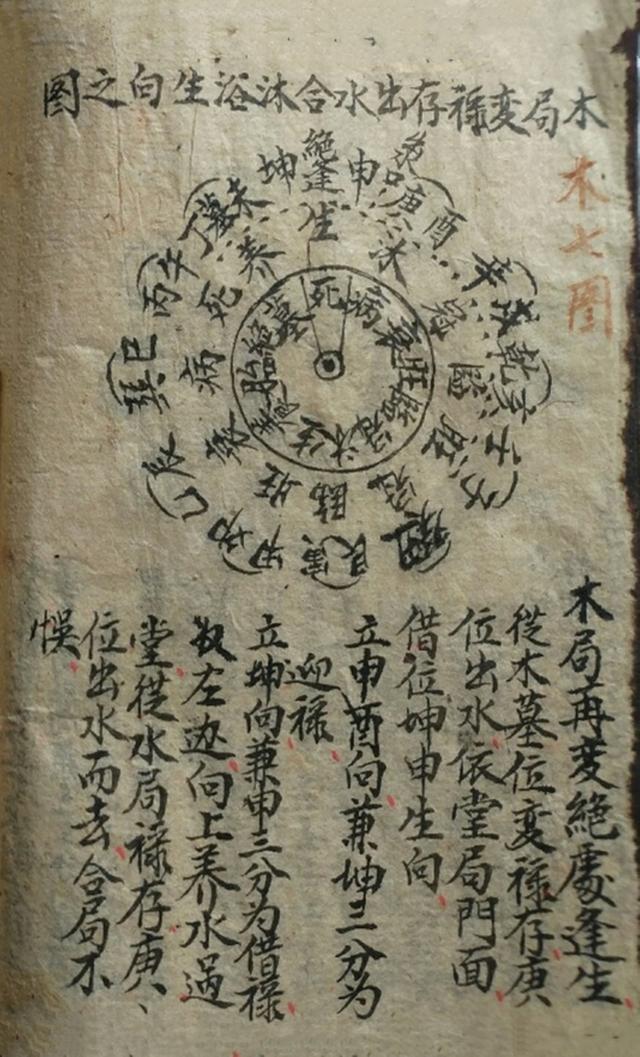 木局变祿存出水合沐浴生向之图
木七圖
絕逢生
坤
申
庚
酉
辛
戌
乾
亥
壬
艮
寅
甲
辰
巽
巳
丙
午
丁
未
生
沐
冠
旺
病
死
养
死
病
衰
旺
臨
冠
沐
生
养
胎
絕
墓
木局再変絕處逢生
從木墓位変祿存庚
位出水依堂局門面
借位坤申生向
立申酉向兼坤三分为
迎祿
立坤向兼申三分为借祿
收左边向上养水過
堂從水局祿存庚
位出水而去合局不
悞